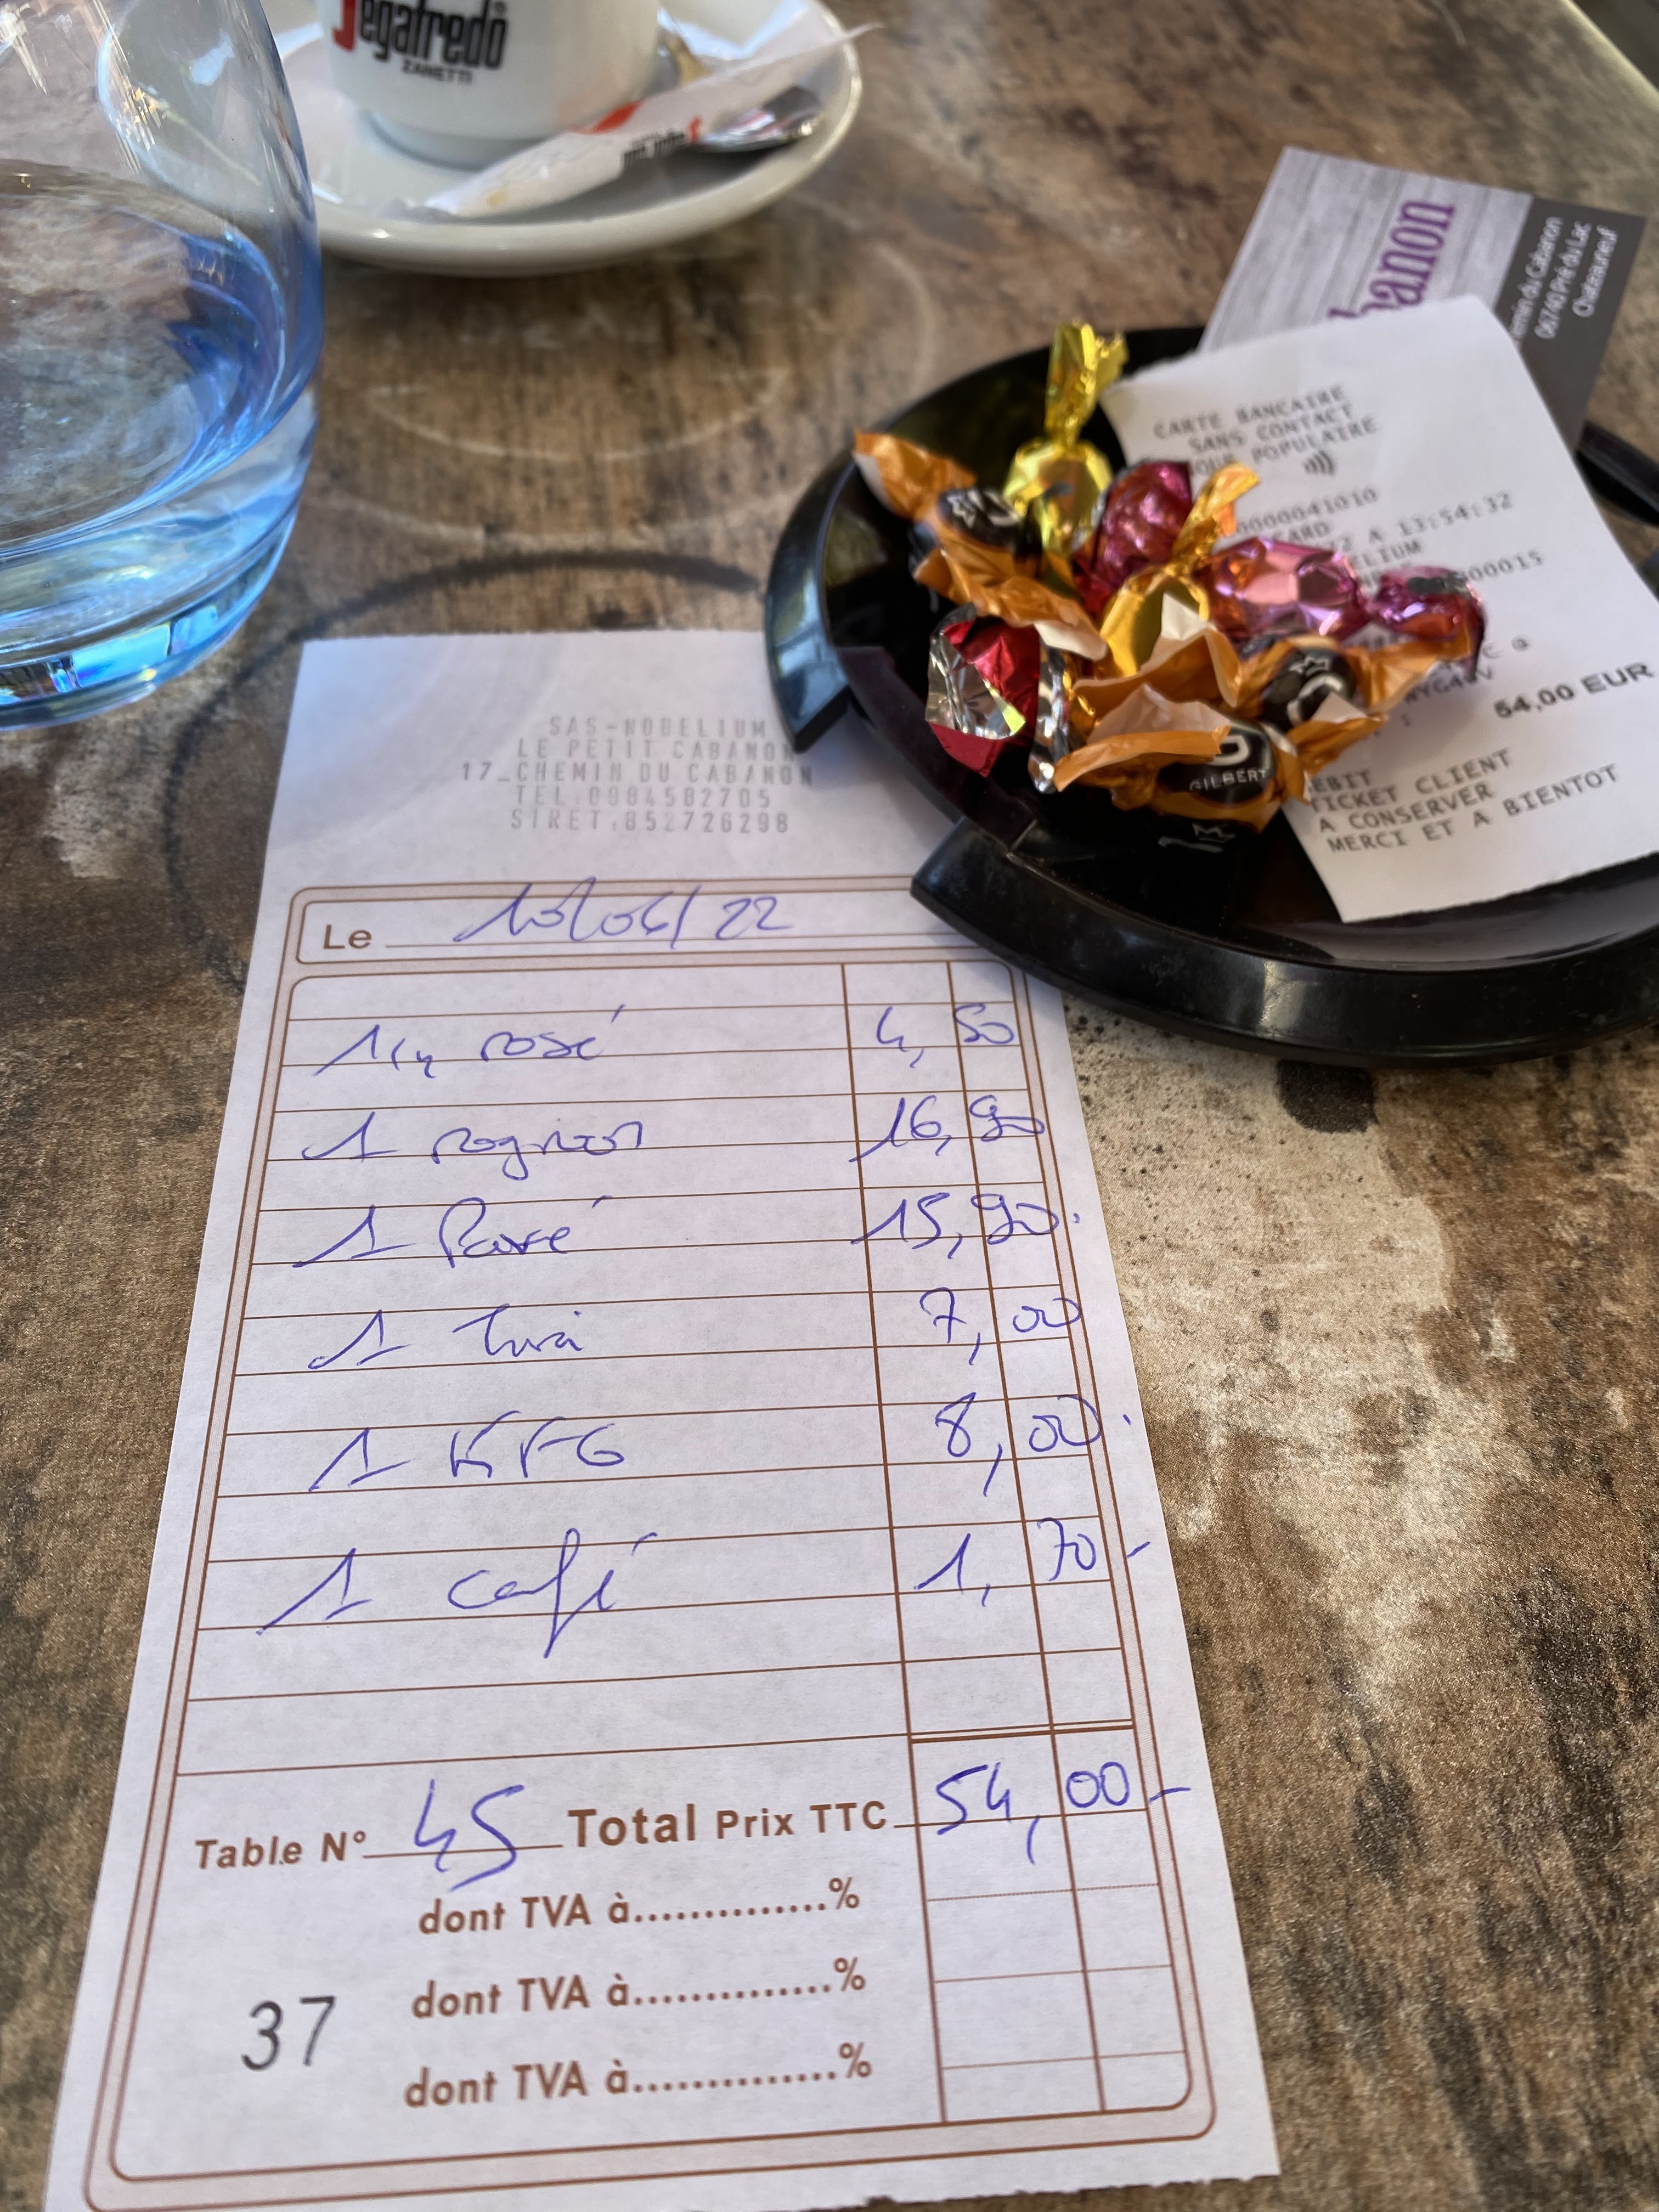 Segafredo®
ZANETTI
banon
Chemin du Cabanon
06740 Pré du Lac
Chateauneuf
CARTE BANCAIRE
SANS CONTACT
POPULAIRE
0000041010
ARD
A 13:54:32
ELIUM
00015
54,00 EUR
DEBIT
TICKET CLIENT
A CONSERVER
MERCI ET A BIENTOT
GILBERT
SAS-NOBELIUM
LE PETIT CABANON
17_CHEMIN DU CABANON
TEL:0984582705
SIRET:852726298
Le 10/06/22
1/4 rosé 4,50
1 rognon 16,90
1 Pavé 15,90
1 7,00
1 KFG 8,00
1 café 1,70
Table N° 45 Total Prix TTC 54,00
dont TVA à..............%
dont TVA à..............%
dont TVA à..............%
37